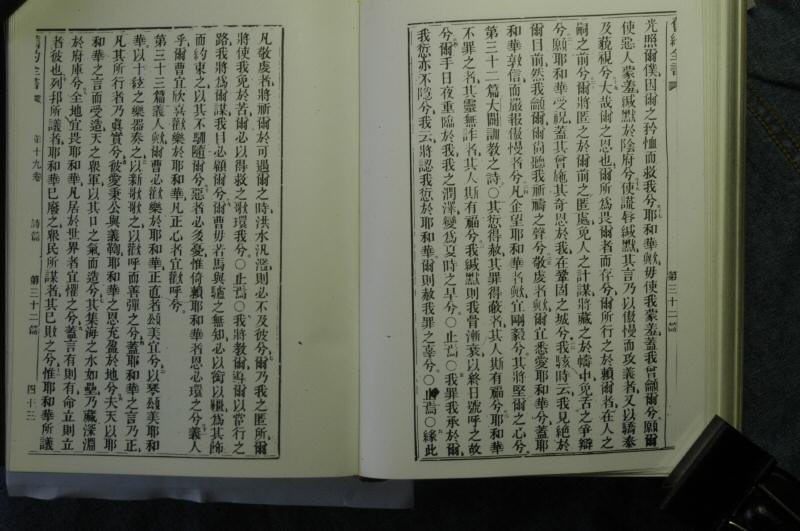 舊約全書
光照爾僕因爾之矜恤而救我兮耶和華歟毋使我蒙羞蓋我曾龥爾兮願爾
使惡人蒙羞緘默於陰府兮使謊唇緘默其言乃以傲慢而攻義者又以驕泰
及藐視兮大哉爾之恩也爾所爲畏爾者而存兮爾所行之於賴爾者在人之
嗣之前兮爾將匿之於爾前之匿處免人之計謀將藏之於幬中免舌之爭辯
兮願耶和華受祝蓋其曾施其奇恩於我在鞏固之城兮我駭時云我見絕於
爾目前然我龥爾爾尙聽我祈禱之聲兮敬虔者歟爾宜悉愛耶和華兮蓋耶
和華敦信而嚴報傲慢者兮凡企望耶和華者歟宜剛毅兮其將堅爾之心兮
第三十二篇大闢訓教之詩〇其愆得赦其罪得蔽者其人斯有福兮耶和華
不罪之者其靈無詐者其人斯有福兮我緘默則我骨漸衰以終日號呼之故
兮爾手日夜重臨於我我之潤澤變爲夏時之旱兮〇止焉〇我罪我承於爾
我愆亦不隐兮我云將認我愆於耶和華爾則赦我罪之辜兮〇止焉〇緣此
第三十二篇
凡敬虔者將祈爾於可遇爾之時洪水汎濫則必不及彼兮爾乃我之匿所爾
將使我免於若爾必以得救之歌環我兮〇止焉〇我將教爾導爾以當行之
路我將爲爾謀我目必顧爾兮爾曹毋若馬與驢之無知必以銜以韁爲其飾
而約束之以其不馴隨爾兮惡者必多憂惟倚賴耶和華者恩必環之兮義人
乎爾曹宜欣喜歡樂於耶和華凡正心者宜歡呼兮
第三十三篇義人歟爾曹必歡樂於耶和華正直者頌美宜兮以琴頌美耶和
華以十絃之樂器奏之以新歌歌之以歡呼而善彈之兮蓋耶和華之言乃正
凡其所行者乃眞實兮彼愛秉公與義鞫耶和華之恩充盈於地兮夫天以耶
和華之言而受造天之衆軍以其口之氣而造兮其集海之水如壘乃藏深淵
於府庫兮全地宜畏耶和華凡居於世界者宜懼之兮蓋言有則有命立則立
者彼也列邦所議者耶和華已廢之衆民所謀者其已敗之兮惟耶和華所議
舊約全書
第十九卷
詩篇
第三十二篇
四十三